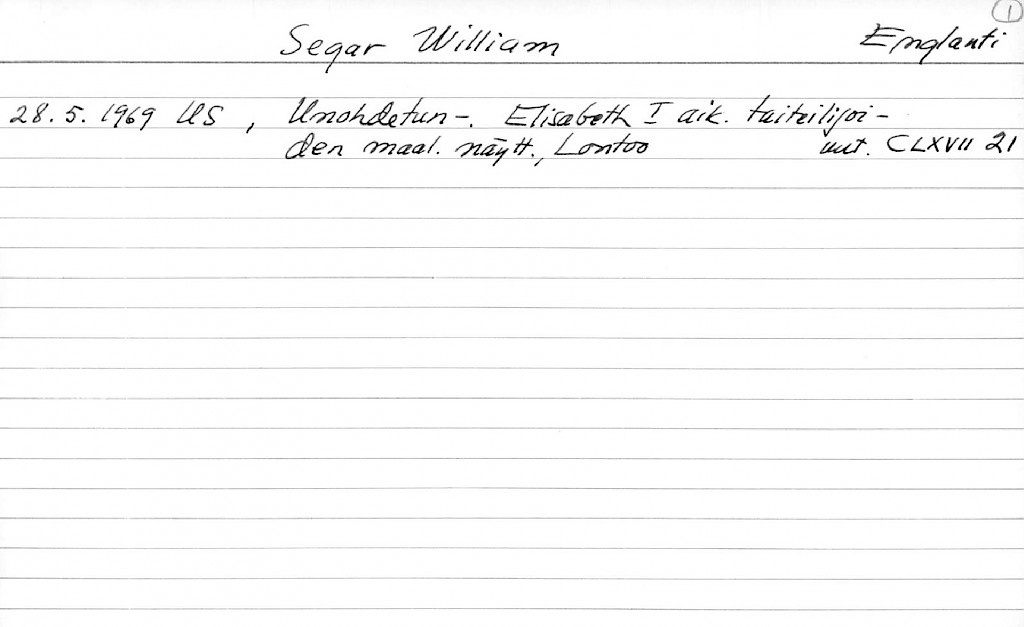 1
Segar William Englanti
28.5.1969 US, Unohdetun-. Elisabeth I aik. taiteilijoi-
den maal. näytt., Lontoo uut. CLXVII 21